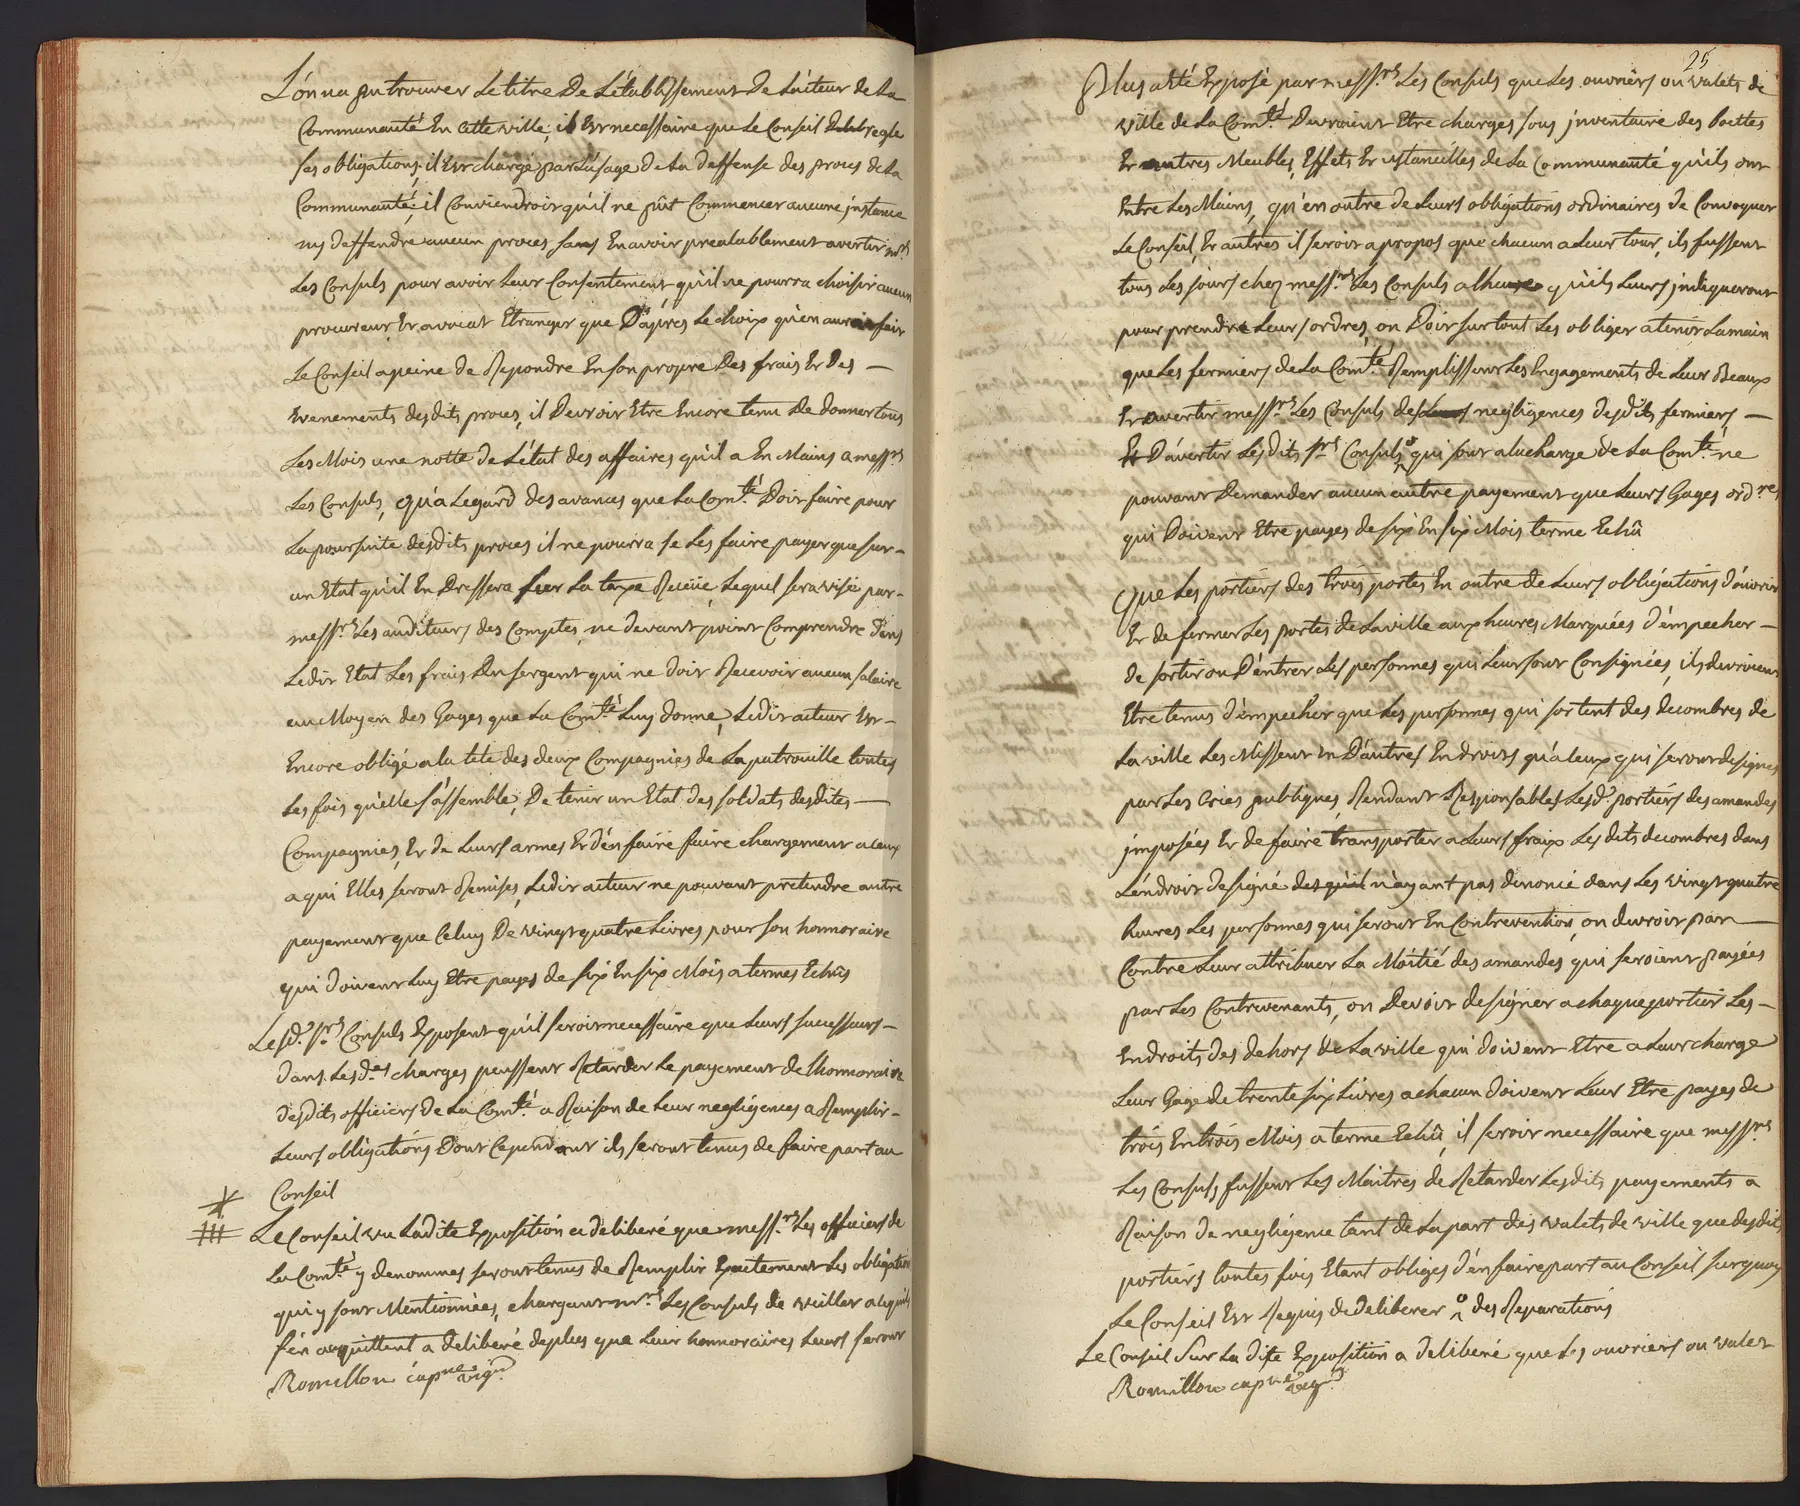 L'on na pu trouver Le titre De L'établissement De L'acteur de La
Communauté En cette ville, il Est necessaire que Le Conseil regle
ses obligations, il Est chargé par L'usage De La deffense des proces de La
Communauté, il Conviendroit qu'il ne pût Commencer aucune jnstance
ny deffendre aucun proces sans En avoir prealablement avertir mrs
Les Consuls pour avoir Leur Consentement qu'il ne pourra choisir aucun
procureur Et avocat Etranger que D'apres Le choix qu'en auroit fait
Le Conseil a peine de Repondre En son propre Des frais Et Des —
Evenements desdits proces, il Devroit Etre Encore tenu De donner tous
Les Mois une notte de L'état des affaires qu'il a En Mains a messrs
Les Consuls, qu'a L'egard des avances que La Comté Doit faire pour
La poursuite desdits proces il ne pourra se Les faire payer que sur —
un Etat qu'il En Dressera sur La taxe Reçüe, Lequel sera visé par —
messrs Les auditeurs des Comptes, ne devant point Comprendre Dans
Ledit Etat Les frais Du sergent qui ne doit Recevoir aucun salaire
au Moyen des Gages que La Comté Luy donne, Ledit acteur Est —
Encore obligé a la tete des deux Compagnies de La patrouille toutes
Les fois qu'elle s'assemble, De tenir un Etat des soldats desdites —
Compagnies, Et de Leurs armes Et d'en faire faire chargement a ceux
a qui Elles seront Remises, Ledit acteur ne pouvant pretendre autre
payement que Celuy De vingt quatre Livres pour son honnoraire
qui doivent Luy Etre payes de six En six Mois a termes Echûs
Lesd. srs Consuls Exposent qu'il seroit necessaire que Leurs successeurs —
dans Lesdes charges peussent Retarder Le payement de l'honnoraire
desdits officiers de La Comté a Raison de Leur negligences a Remplir —
Leurs obligations Dont Cependant ils seront tenus de faire part au
Conseil
Le Conseil vu Ladite Exposition a deliberé que messrs Les officiers de
La Comté y denommes seront tenus de Remplir Exactement Les obligations
qui y sont Mentionnées, chargeant mrs Les Consuls de veiller a ce qu'ils
s'en acquittent a deliberé de plus que Leur honnoraires Leurs seront
Romillon capne vigr
25
Plus a été Exposé par messrs Les Consuls que Les ouvriers ou valets de
ville de La Comté Devroient Etre charges sous jnventaire des boettes
Et autres Meubles, Effets Et ustancilles de La Communauté qu'ils ont
Entre Les Mains, qu'en outre de Leurs obligations ordinaires de Convoquer
Le Conseil, Et autres il seroit a propos que chacun a Leur tour, ils fussent
tous Les jours chez messrs Les Consuls a lheure qu'ils Leurs jndiqueront
pour prendre Leurs ordres, on Doit surtout Les obliger a tenir La main
que Les fermiers de La Comté Remplissent Les Engagements de Leur Beaux
Et avertir messrs Les Consuls des negligences desdits fermiers, —
Et D'avertir Lesdits srs Consuls qui sont a la charge de La Comté ne
pouvant Demander aucun autre payement que Leurs Gages ordres
qui Doivent Etre payes de six En six Mois terme Echû
Que Les portiers des trois portes En outre de Leurs obligations d'ouvrir
Et de fermer Les portes de La ville aux heures Marquées d'empecher —
de sortir ou D'entrer Les personnes qui Leur sont Consignées, ils devroient
Etre tenus d'empecher que Les personnes qui sortent des decombres de
La ville Les Missent En D'autres Endroits qu'a Ceux qui seront designes
par Les Cries publiques, Rendant Responsables Lesd. portiers des amandes
jmposées Et de faire transporter a Leurs fraix Lesdits decombres dans
L'endroit designé n'ayant pas denoncé dans Les vingt quatre
heures Les personnes qui seront En Contrevention, on devroit par —
Contre Leur attribuer La Moitié des amandes qui seroient payées
par Les Contrevenants, on Devoit designer a chaque portier Les —
Endroits des dehors de La ville qui doivent Etre a Leur charge
Leur Gage de trente six Livres a chacun doivent Leur Etre payes de
trois En trois Mois a terme Echû, il seroit necessaire que messrs
Les Consuls fussent Les Maitres de Retarder Lesdits payements a
Raison de negligence tant de La part des valets de ville que desdits
portiers toutes fois Etant obliges d'en faire part au Conseil surquoy
Le Conseil Est Requis de deliberer des Reparations
Le Conseil Sur La dite Exposition a deliberé que Les ouvriers ou valet
Romillon capne vigr